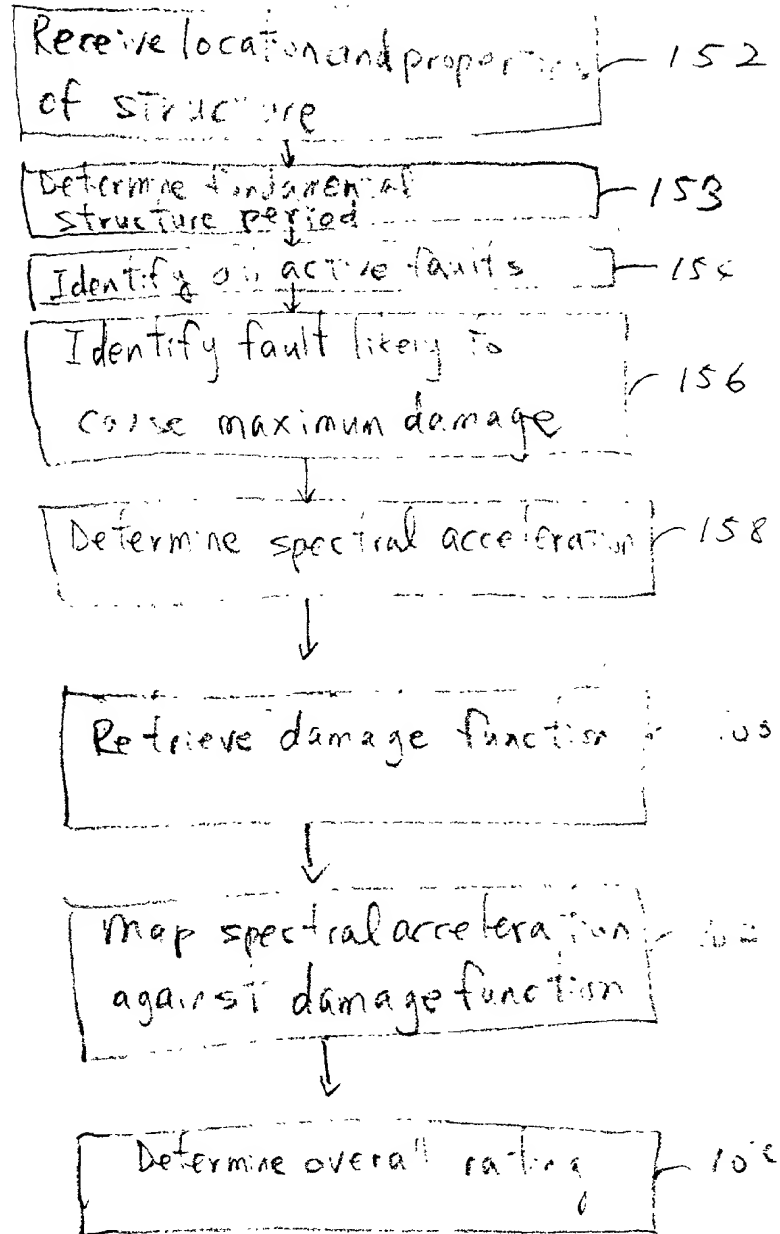 Receive location and properties 152
of structure
Determine fundamental 153
structure period
Identify all active faults
Identify fault likely to
cause maximum damage 156
Determine spectral acceleration 158
Retrieve damage function
map spectral acceleration
against damage function
Determine overall rating